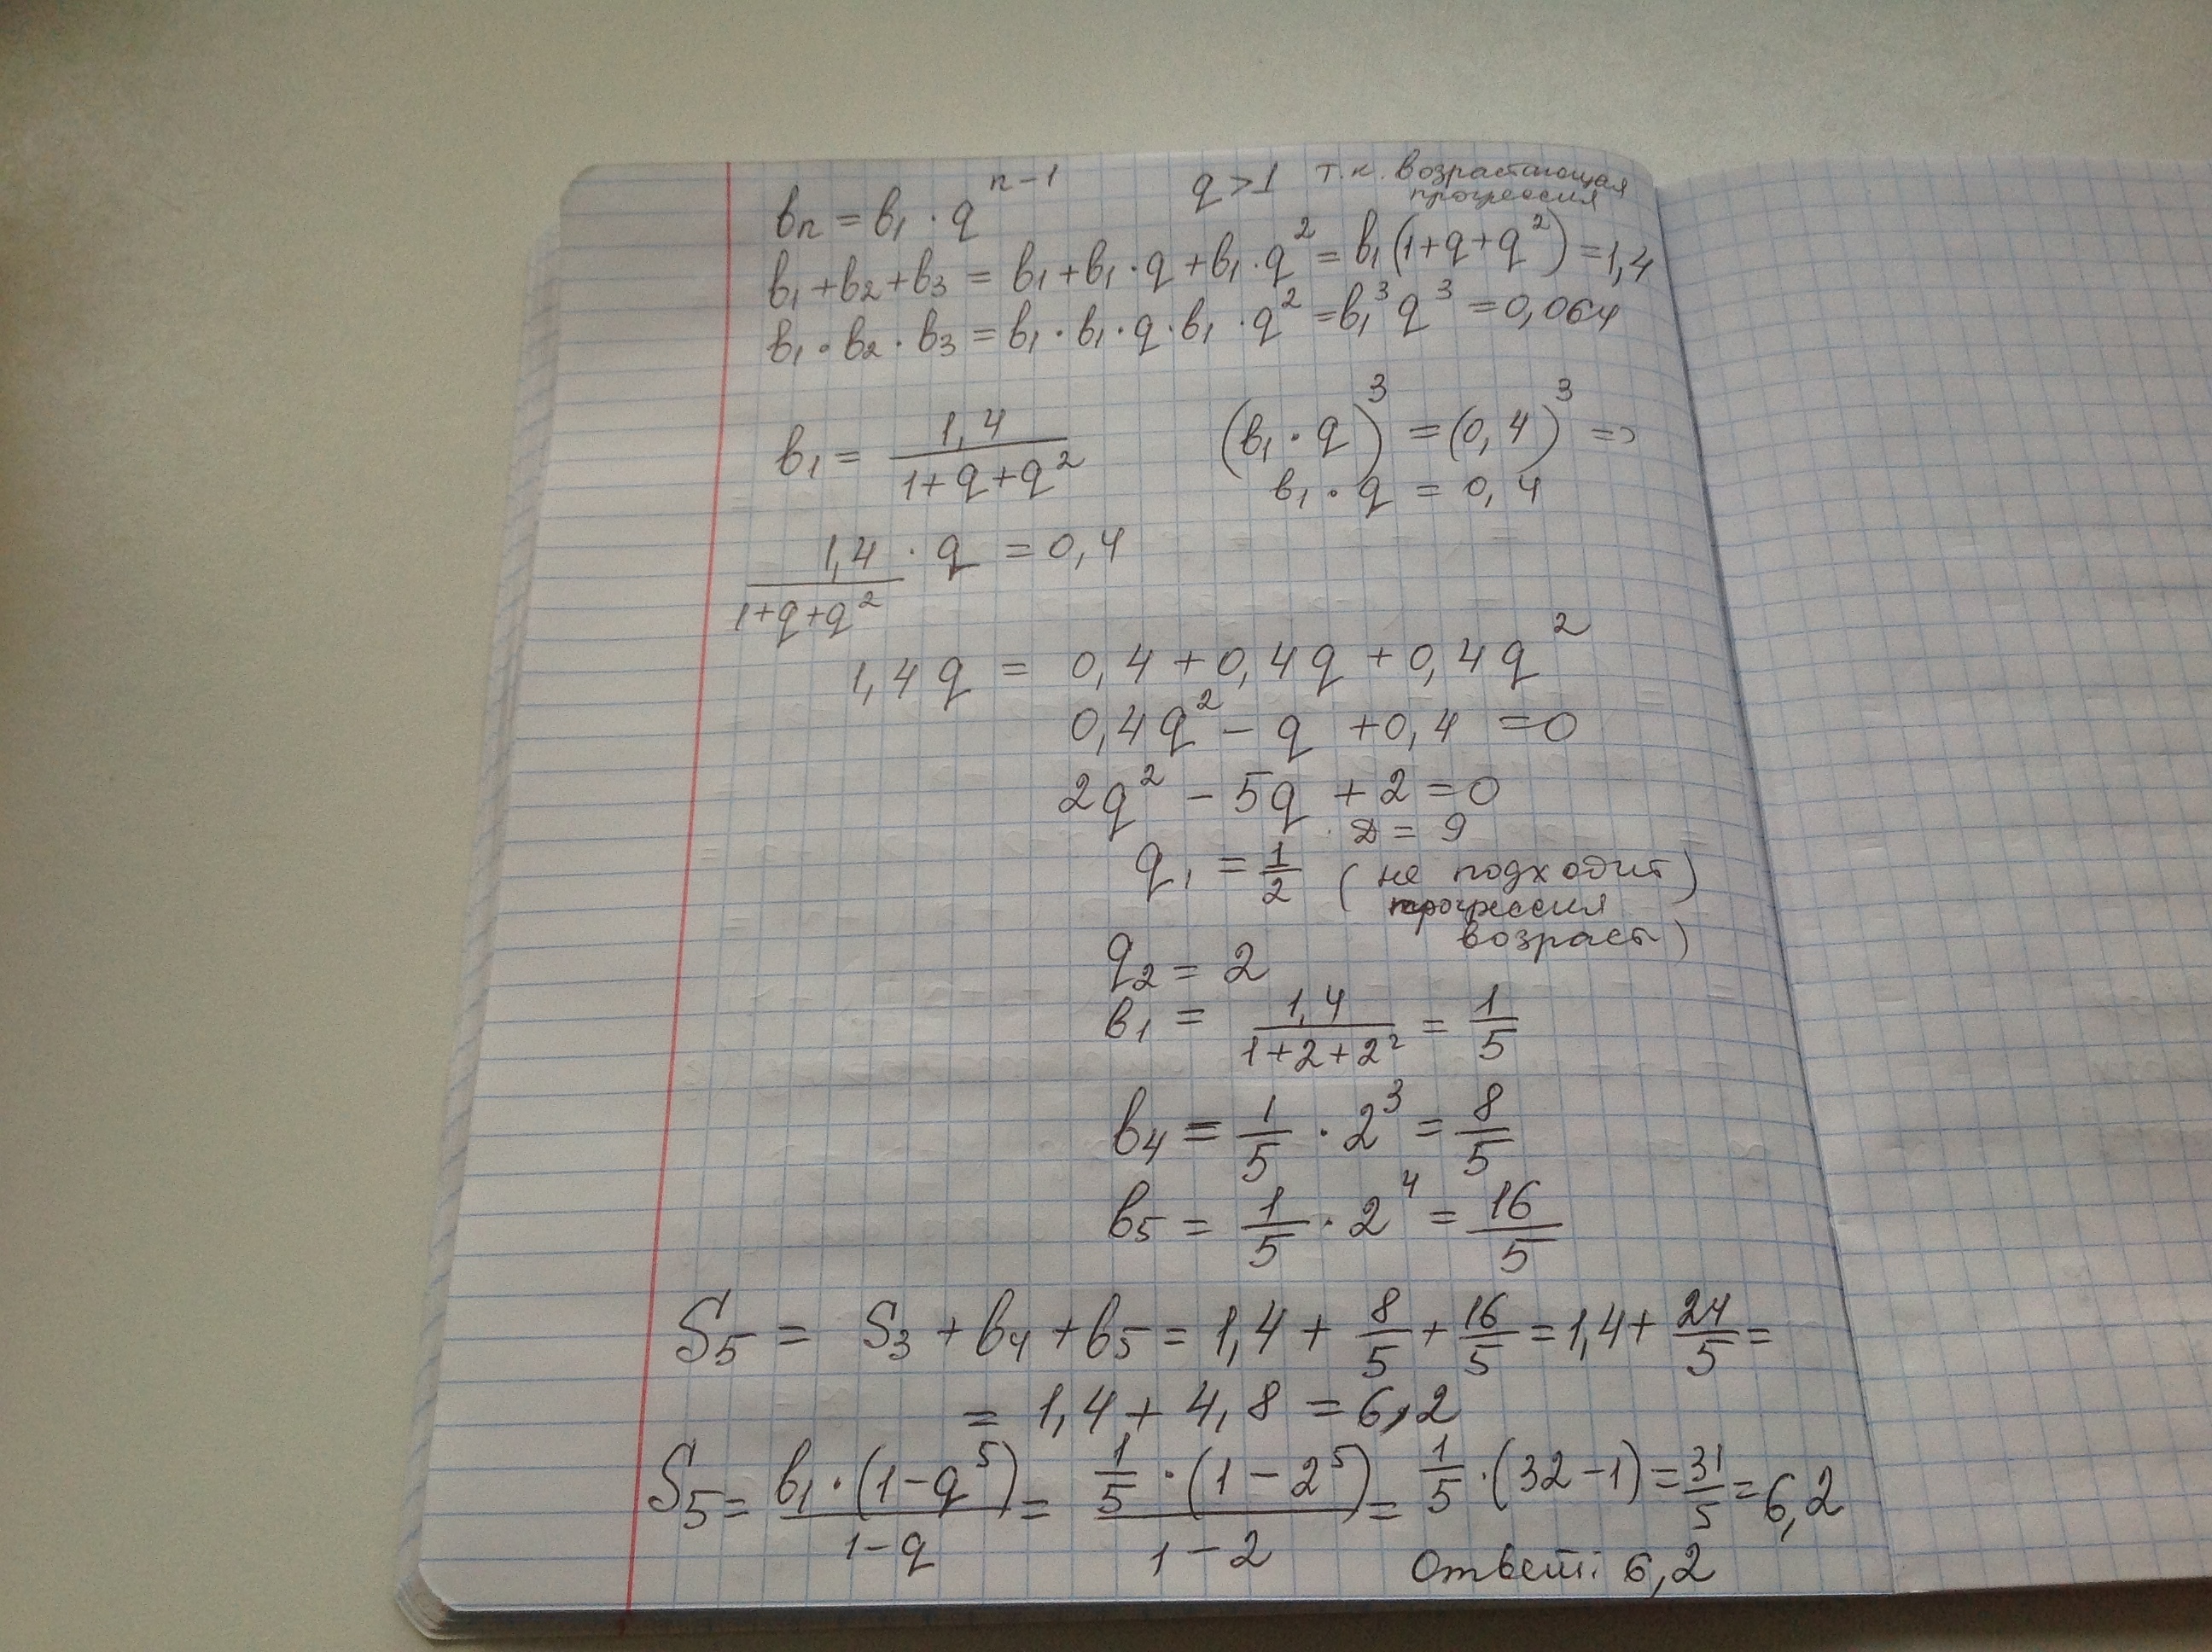 bn = b₁ · q^(n-1)   q > 1 т.к. возрастающая прогрессия
b₁ + b₂ + b₃ = b₁ + b₁ · q + b₁ · q² = b₁(1+q+q²) = 1,4
b₁ · b₂ · b₃ = b₁ · b₁ · q · b₁ · q² = b₁³ q³ = 0,064
b₁ = 1,4/(1+q+q²)   (b₁ · q)³ = (0,4)³ =>
b₁ · q = 0,4
1,4/(1+q+q²) · q = 0,4
1,4q = 0,4 + 0,4q + 0,4q²
0,4q² - q + 0,4 = 0
2q² - 5q + 2 = 0
D = 9
q₁ = 1/2 (не подходит)
прогрессия
возраст)
q₂ = 2
b₁ = 1,4/(1+2+2²) = 1/5
b₄ = 1/5 · 2³ = 8/5
b₅ = 1/5 · 2⁴ = 16/5
S₅ = S₃ + b₄ + b₅ = 1,4 + 8/5 + 16/5 = 1,4 + 24/5 =
= 1,4 + 4,8 = 6,2
S₅ = b₁ · (1-q⁵)/(1-q) = 1/5 · (1-2⁵)/(1-2) = 1/5 · (32-1) = 31/5 = 6,2
Ответ: 6,2